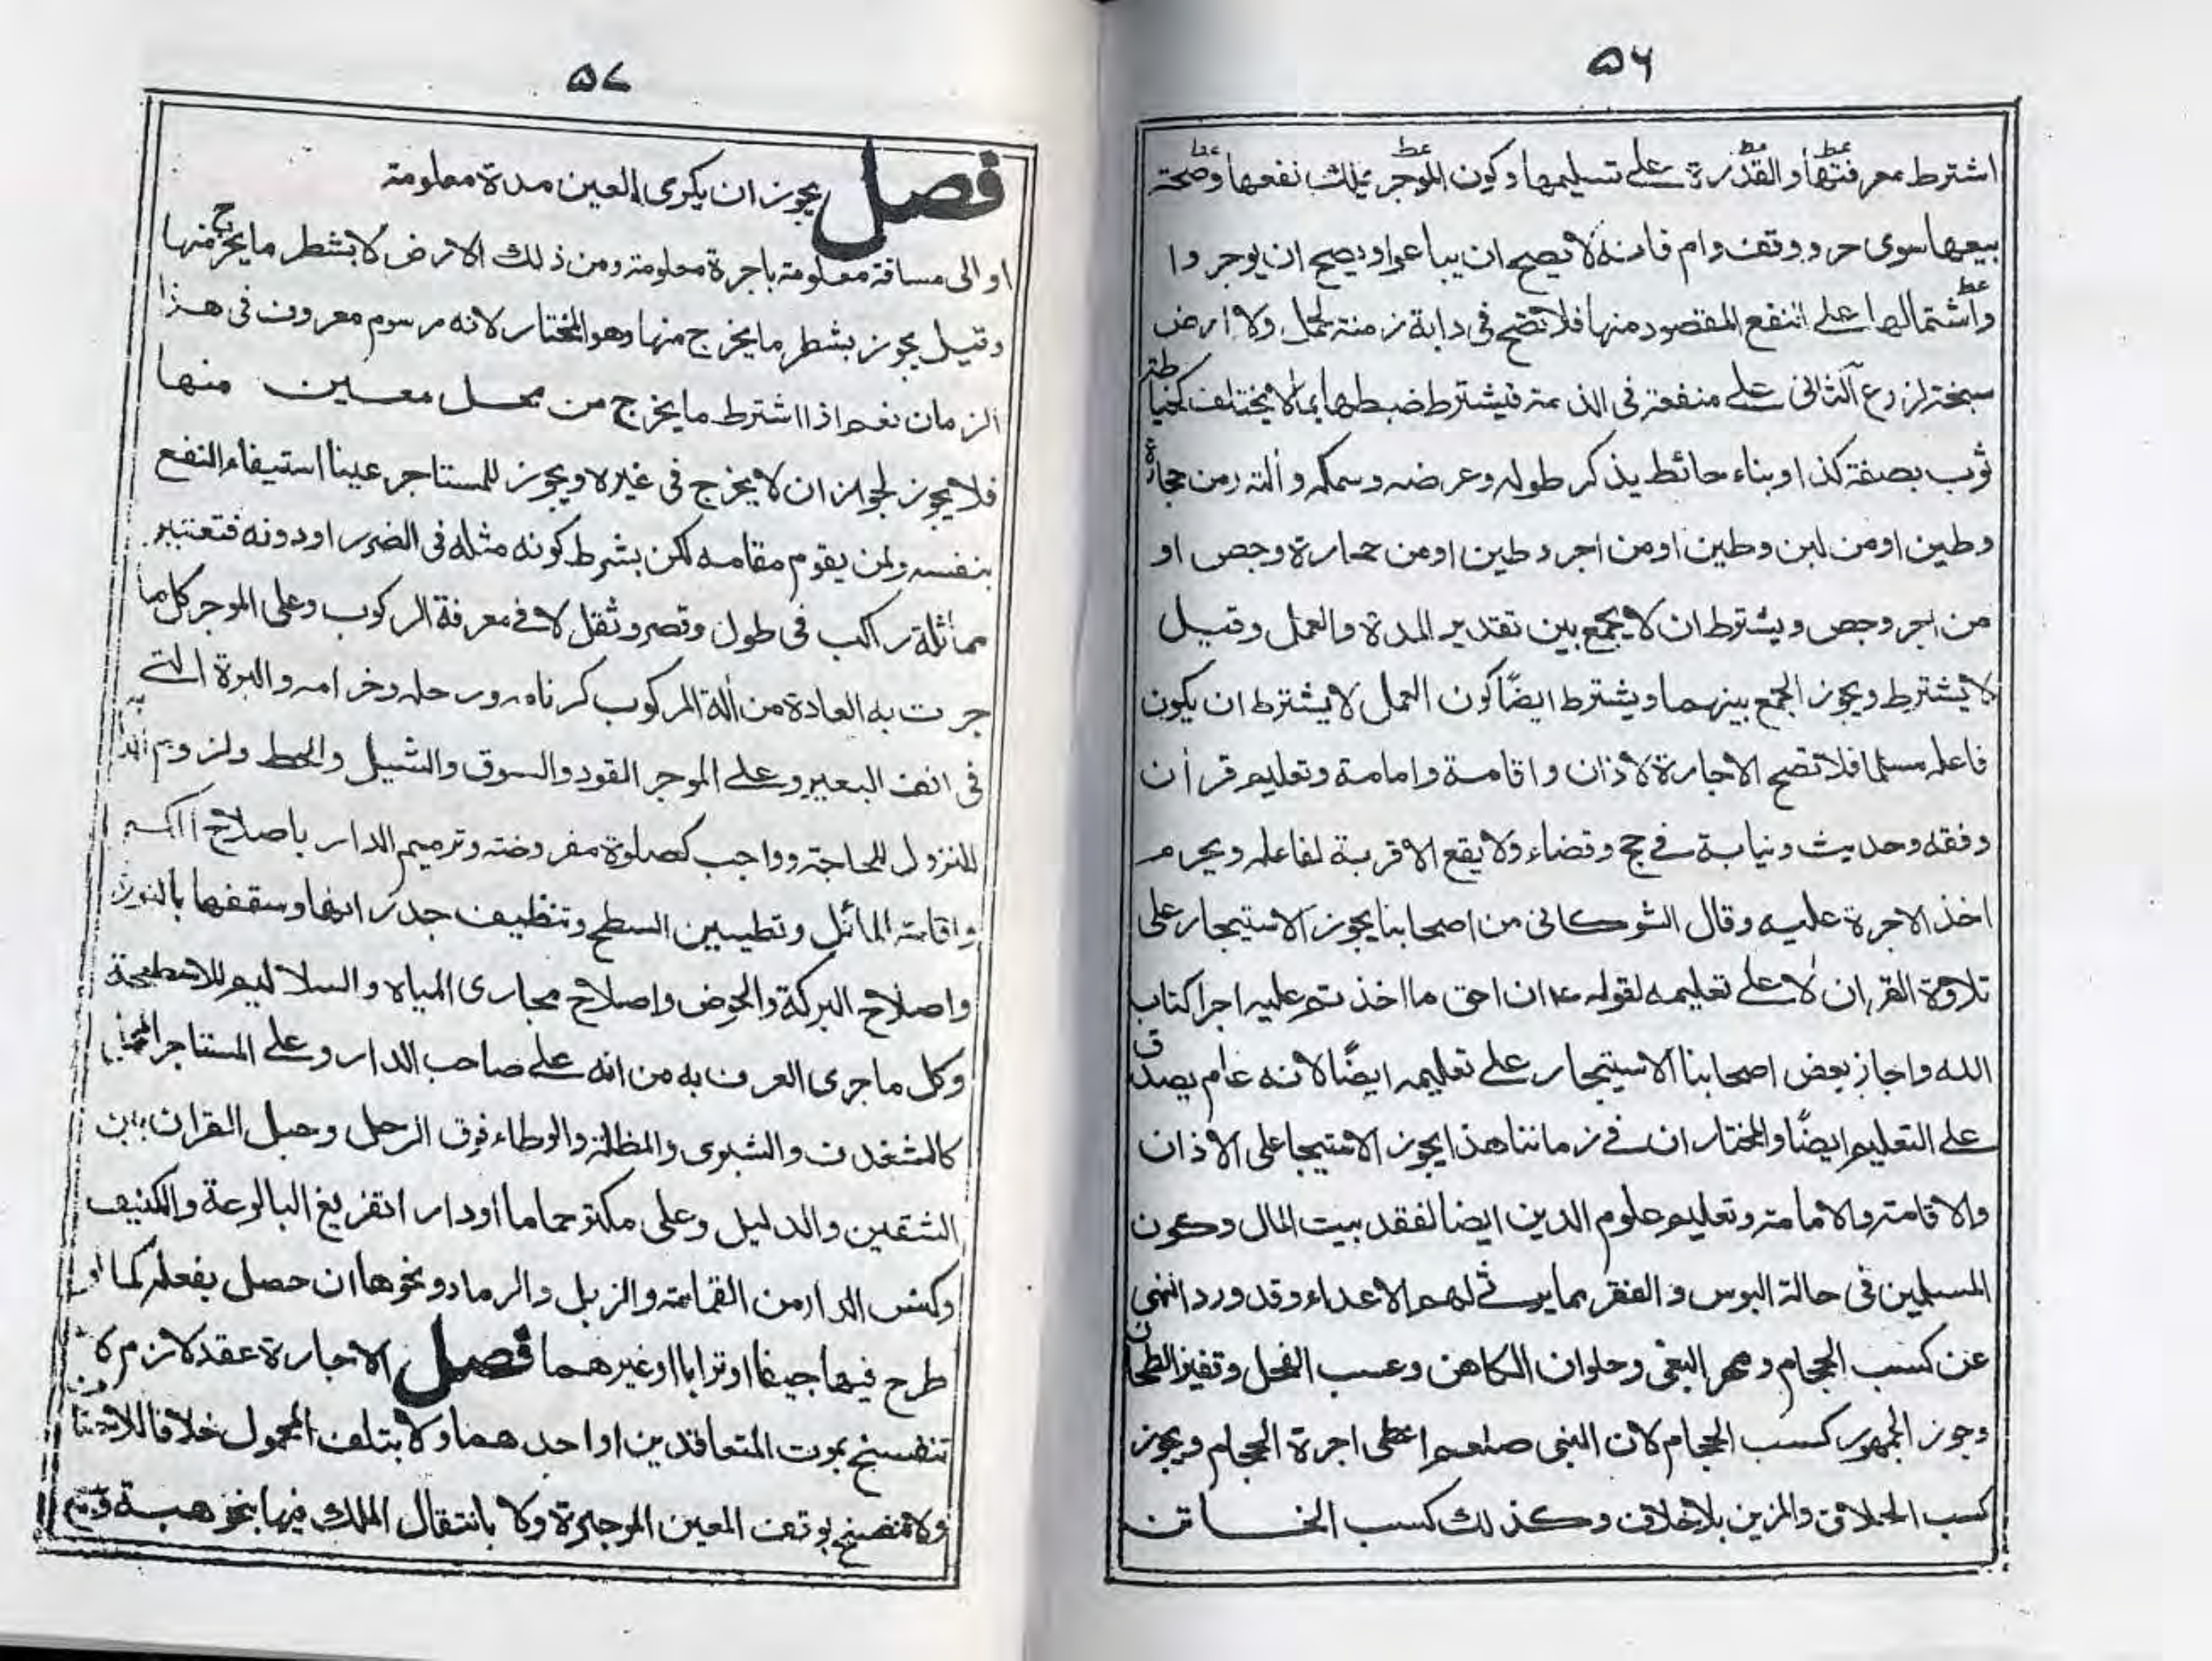 ٥٦
اشترط معرفتها والقدرة على تسليمها وكون الموجر يملك نفعها وصحة
بيعها سوى حر ووقف وام فانه لا يصح ان يباعوا ويصح ان يوجروا
واشتمالها على النفع المقصود منها فلا تصح فى دابة زمنة لحمل ولا ارض
سبخة لزرع الثانى على منفعة فى الذمة فيشترط ضبطها بما لا يختلف كخياطة
ثوب بصفة كذا وبناء حائط يذكر طوله وعرضه وسمكه وألته ومن حجارة
وطين اومن لبن وطين اومن اجر وطين اومن حجارة وجص او
من اجر وجص ويشترط ان لا يجمع بين تقدير المدة والعمل وقيل
لا يشترط ويجوز الجمع بينهما ويشترط ايضًا كون العمل لا يشترط ان يكون
فاعله مسلما فلا تصح الاجارة لاذان واقامة وامامة وتعليم قرأن
وفقه وحديث ونيابة فى حج وقضاء ولا يقع الا قربة لفاعله ويحرم
اخذ الاجرة عليه وقال الشوكانى من اصحابنا يجوز الاستيجار على
تلاوة القران لا على تعليمه لقوله ع ان احق ما اخذتم عليه اجرا كتاب
الله واجاز بعض اصحابنا الاستيجار على تعليمه ايضًا لانه عام يصدق
على التعليم ايضًا والمختار ان فى زماننا هذا يجوز الاستيجا على الاذان
والاقامة والامامة وتعليم علوم الدين ايضا لفقد بيت المال وكون
المسلمين فى حالة البوس والفقر مما يرثے لهم الاعداء وقد ورد النهى
عن كسب الحجام ومهر البغى وحلوان الكاهن وعسب الفحل وقفيز الطحان
وجوز الجمهور كسب الحجام لان النبى صلعم اعطى اجرة الحجام ويجوز
كسب الحلاق والمزين بلا خلاف وكذلك كسب الخاتن
٥٧
فصل يجوز ان يكرى العين مدة معلومة
او الى مسافة معلومة باجرة معلومة ومن ذلك الارض لا بشطر ما يخرج منها
وقيل يجوز بشطر ما يخرج منها وهو المختار لانه مرسوم معروف فى هذا
الزمان نعم اذا اشترط ما يخرج من محل معين منها
فلا يجوز لجواز ان لا يخرج فى غيره ويجوز للمستاجر عينا استيفاء النفع
بنفسه ولمن يقوم مقامه لكن بشرط كونه مثله فى الضرر او دونه فتعتبر
مماثلة راكب فى طول وقصر وثقل لا فى معرفة الركوب وعلى الموجر كل ما
جرت به العادة من ألة المركوب كزمامه ورحله وخزامه والبرة التے
فى انف البعير وعلى الموجر القود والسوق والشيل والحط ولزوم
للنزول للحاجة وواجب كصلوة مفروضة وترميم الدار باصلاح
واقامة المائل وتطيين السطح وتنظيف جدرانها وسقفها بالنورة
واصلاح البركة والحوض واصلاح مجارى المياه والسلاليم للاسطحة
وكل ما جرى العرف به من انه على صاحب الدار وعلى المستاجر المحمل
كالشغدف والشبرى والمظلة والوطاء فوق الرحل وحبل القران بين
الشقين والدليل وعلى مكترحماما او دارا تفريغ البالوعة والكنيف
وكنس الدار من القمامة والزبل والرماد ونحوها ان حصل بفعله كما او
طرح فيها جيفا او ترابا او غيرهما فصل الاجارة عقد لازم لا
تنفسخ بموت المتعاقدين او احدهما ولا بتلف المحمول خلافا للاحناف
ولا تنفسخ بوقف العين الموجرة ولا بانتقال الملك فيها بنحو هبة وبيع